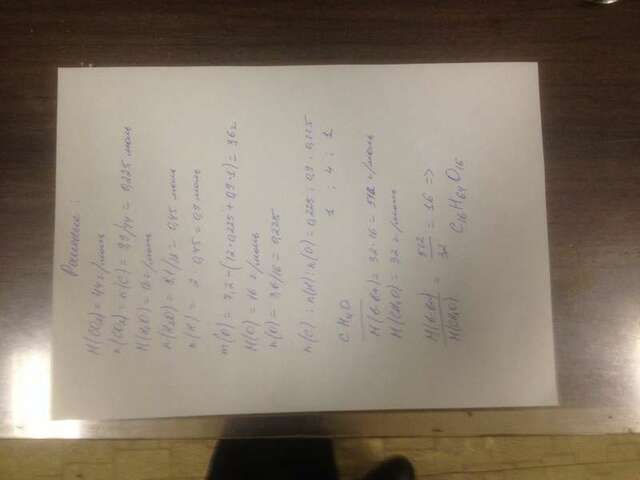 Решение:
M(CO₂) = 44 г/моль
n(CO₂) = n(C) = 9,9/44 = 0,225 моль
M(H₂O) = 18 г/моль
n(H₂O) = 8,1/18 = 0,45 моль
n(H) = 2 · 0,45 = 0,9 моль
m(O) = 7,2 - (12 · 0,225 + 0,9 · 1) = 3,6 г
M(O) = 16 г/моль
n(O) = 3,6/16 = 0,225
n(C) : n(H) : n(O) = 0,225 : 0,9 : 0,225
1 : 4 : 1
CH₄O
M(в-ва) = 32 · 16 = 512 г/моль
M(CH₄O) = 32 г/моль
M(в-ва)/M(CH₄O) = 512/32 = 16 =>
C₁₆H₆₄O₁₆